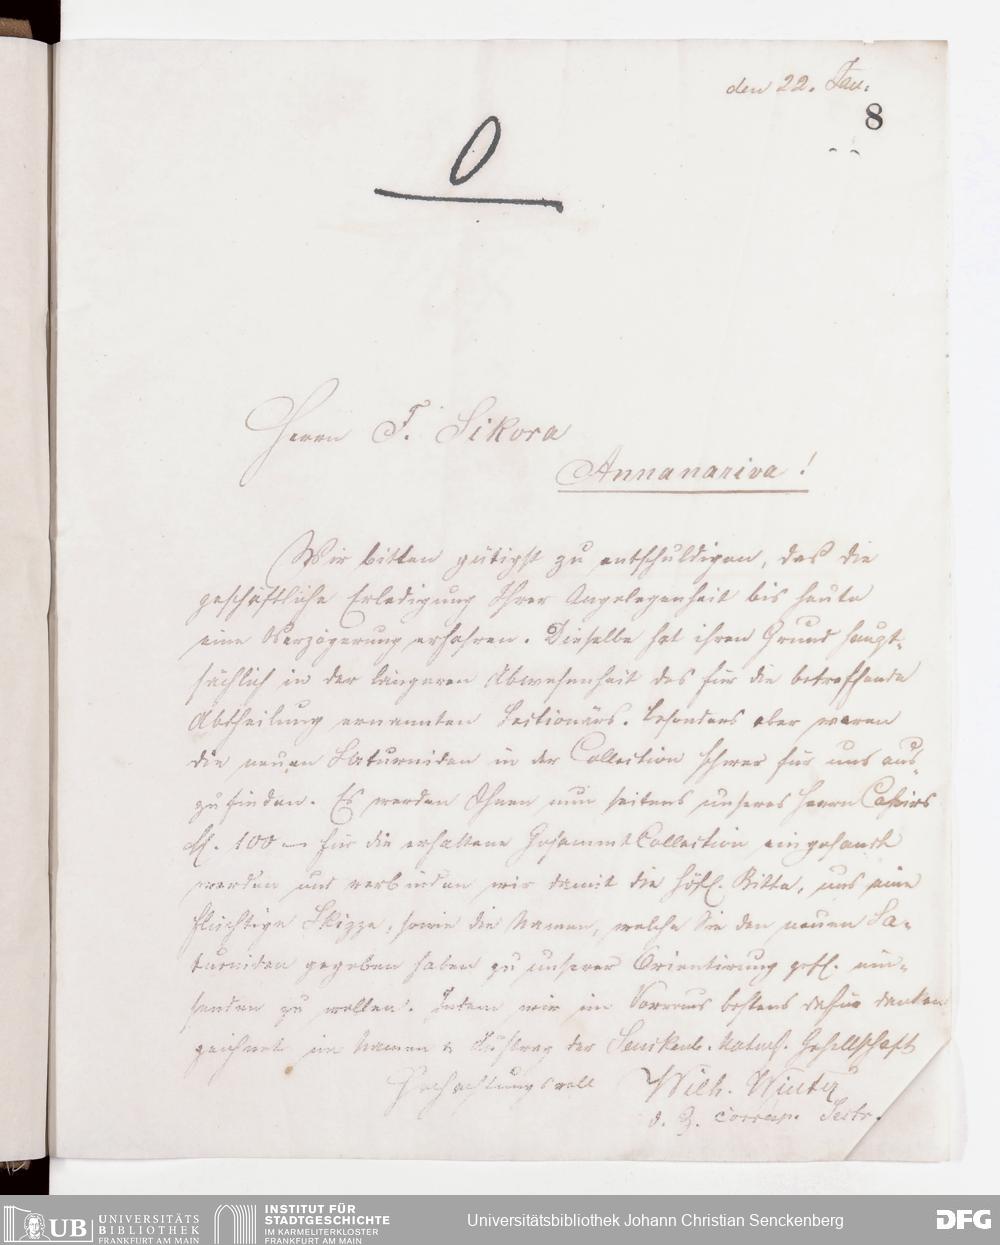 den 22. Jan.
8
0
Herrn F. Sikora
Annanariva!
Wir bitten gütigst zu entschuldigen, daß die
geschäftliche Erledigung Ihrer Angelegenheit bis heute
eine Verzögerung erfahren. Dieselbe hat ihren Grund haupt-
sächlich in der längeren Abwesenheit des für die betreffende
Abtheilung ernannten Sectionärs. Besonders aber waren
die neuen Saturniden in der Collection schwer für uns aus-
zufinden. Es werden Ihnen nun seitens unseres Herrn Cassirs
M. 100 — für die erhaltene Gesammt Collection eingesandt
werden und verbinden wir damit die höfl. Bitte, uns eine
flüchtige Skizze, sowie die Namen, welche Sie den neuen Sa-
turniden gegeben haben zu unserer Orientirung gefl. ein-
senden zu wollen. Indem wir im Voraus bestens dafür danken
zeichnet im Namen & Auftrag der Senckenb. Naturf. Gesellschaft
Hochachtungsvoll Wilh. Winter
d. Z. corresp. Secr.
UB UNIVERSITÄTS
BIBLIOTHEK
FRANKFURT AM MAIN
INSTITUT FÜR
STADTGESCHICHTE
IM KARMELITERKLOSTER
FRANKFURT AM MAIN
Universitätsbibliothek Johann Christian Senckenberg
DFG